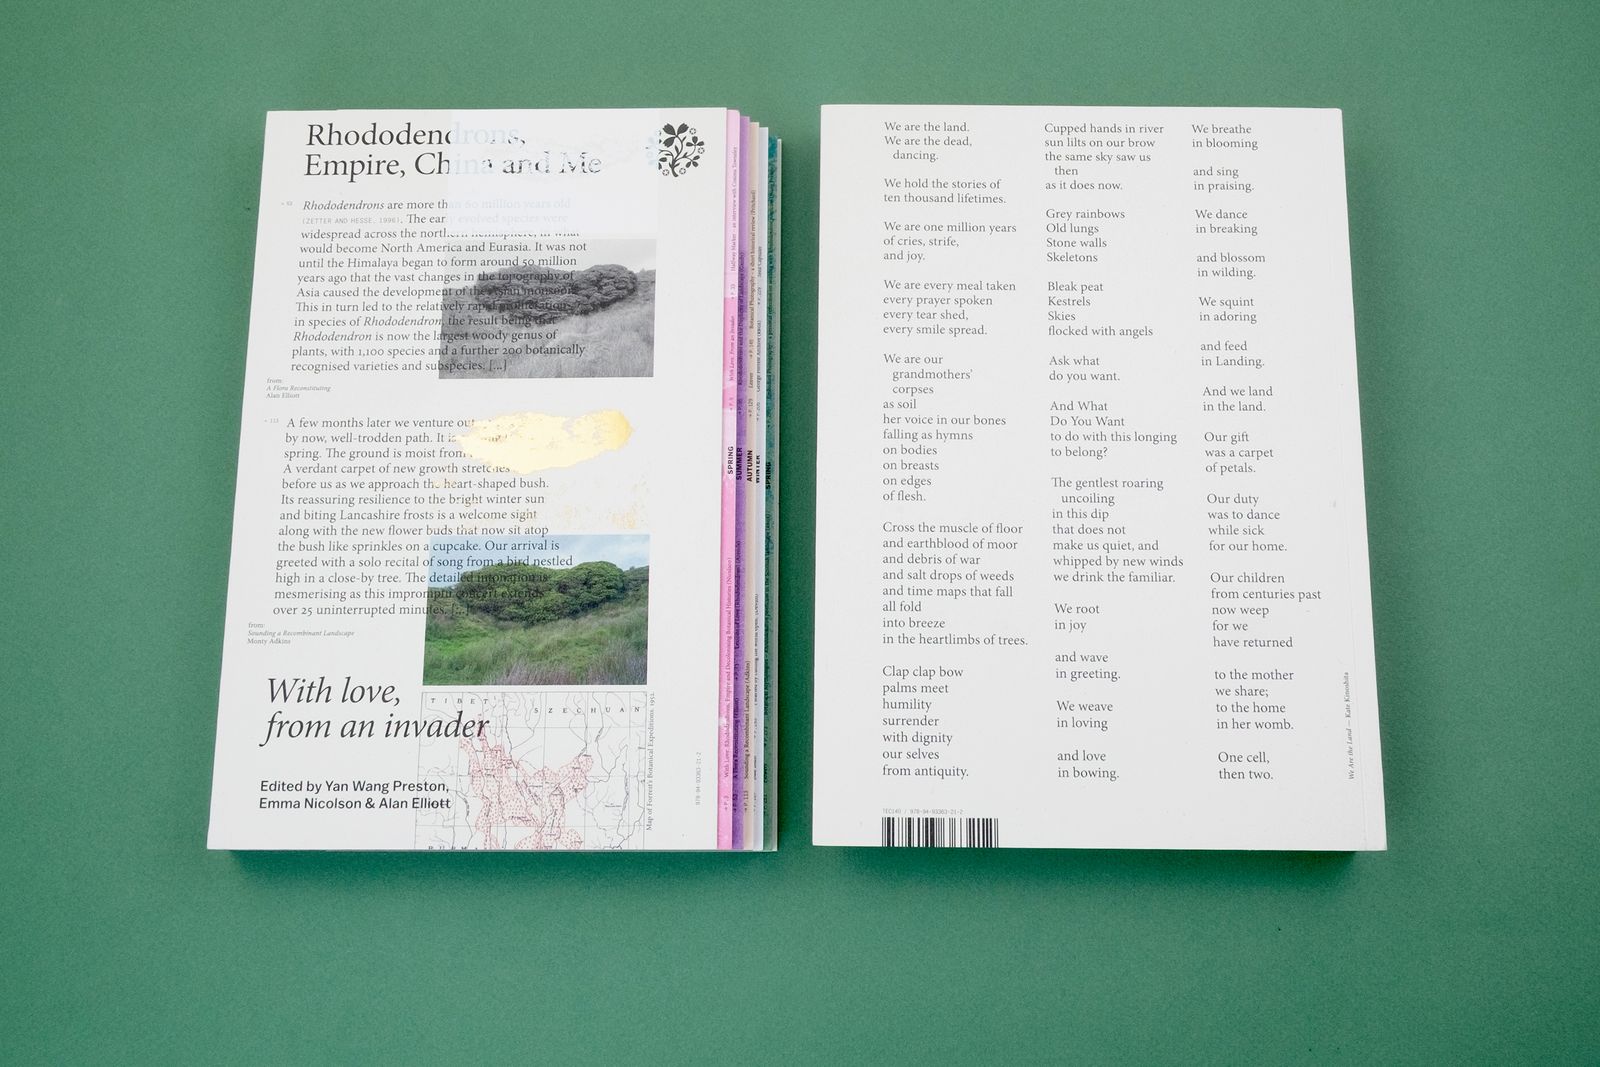 Rhododendrons,
Empire, China and Me
→ 52
Rhododendrons are more than 60 million years old
(ZETTER AND HESSE, 1996). The early evolved species were
widespread across the northern hemisphere, in what
would become North America and Eurasia. It was not
until the Himalaya began to form around 50 million
years ago that the vast changes in the topography of
Asia caused the development of the Asian monsoon.
This in turn led to the relatively rapid proliferation
in species of Rhododendron, the result being that
Rhododendron is now the largest woody genus of
plants, with 1,100 species and a further 200 botanically
recognised varieties and subspecies. [...]
from:
A Flora Reconstituting
Alan Elliott
→ 113
A few months later we venture out
by now, well-trodden path. It is
spring. The ground is moist from
A verdant carpet of new growth stretches
before us as we approach the heart-shaped bush.
Its reassuring resilience to the bright winter sun
and biting Lancashire frosts is a welcome sight
along with the new flower buds that now sit atop
the bush like sprinkles on a cupcake. Our arrival is
greeted with a solo recital of song from a bird nestled
high in a close-by tree. The detailed intonation is
mesmerising as this impromptu concert extends
over 25 uninterrupted minutes. [...]
from:
Sounding a Recombinant Landscape
Monty Adkins
With love,
from an invader
Edited by Yan Wang Preston,
Emma Nicolson & Alan Elliott
TIBET
SZECHUAN
Map of Forrest's Botanical Expeditions, 1952.
978-94-93363-21-2
SPRING
SUMMER
AUTUMN
WINTER
SPRING
We are the land.
We are the dead,
dancing.
We hold the stories of
ten thousand lifetimes.
We are one million years
of cries, strife,
and joy.
We are every meal taken
every prayer spoken
every tear shed,
every smile spread.
We are our
grandmothers'
corpses
as soil
her voice in our bones
falling as hymns
on bodies
on breasts
on edges
of flesh.
Cross the muscle of floor
and earthblood of moor
and debris of war
and salt drops of weeds
and time maps that fall
all fold
into breeze
in the heartlimbs of trees.
Clap clap bow
palms meet
humility
surrender
with dignity
our selves
from antiquity.
Cupped hands in river
sun lilts on our brow
the same sky saw us
then
as it does now.
Grey rainbows
Old lungs
Stone walls
Skeletons
Bleak peat
Kestrels
Skies
flocked with angels
Ask what
do you want.
And What
Do You Want
to do with this longing
to belong?
The gentlest roaring
uncoiling
in this dip
that does not
make us quiet, and
whipped by new winds
we drink the familiar.
We root
in joy
and wave
in greeting.
We weave
in loving
and love
in bowing.
We breathe
in blooming
and sing
in praising.
We dance
in breaking
and blossom
in wilding.
We squint
in adoring
and feed
in Landing.
And we land
in the land.
Our gift
was a carpet
of petals.
Our duty
was to dance
while sick
for our home.
Our children
from centuries past
now weep
for we
have returned
to the mother
we share;
to the home
in her womb.
One cell,
then two.
We Are the Land — Kate Kinoshita
TEC140 / 978-94-93363-21-2